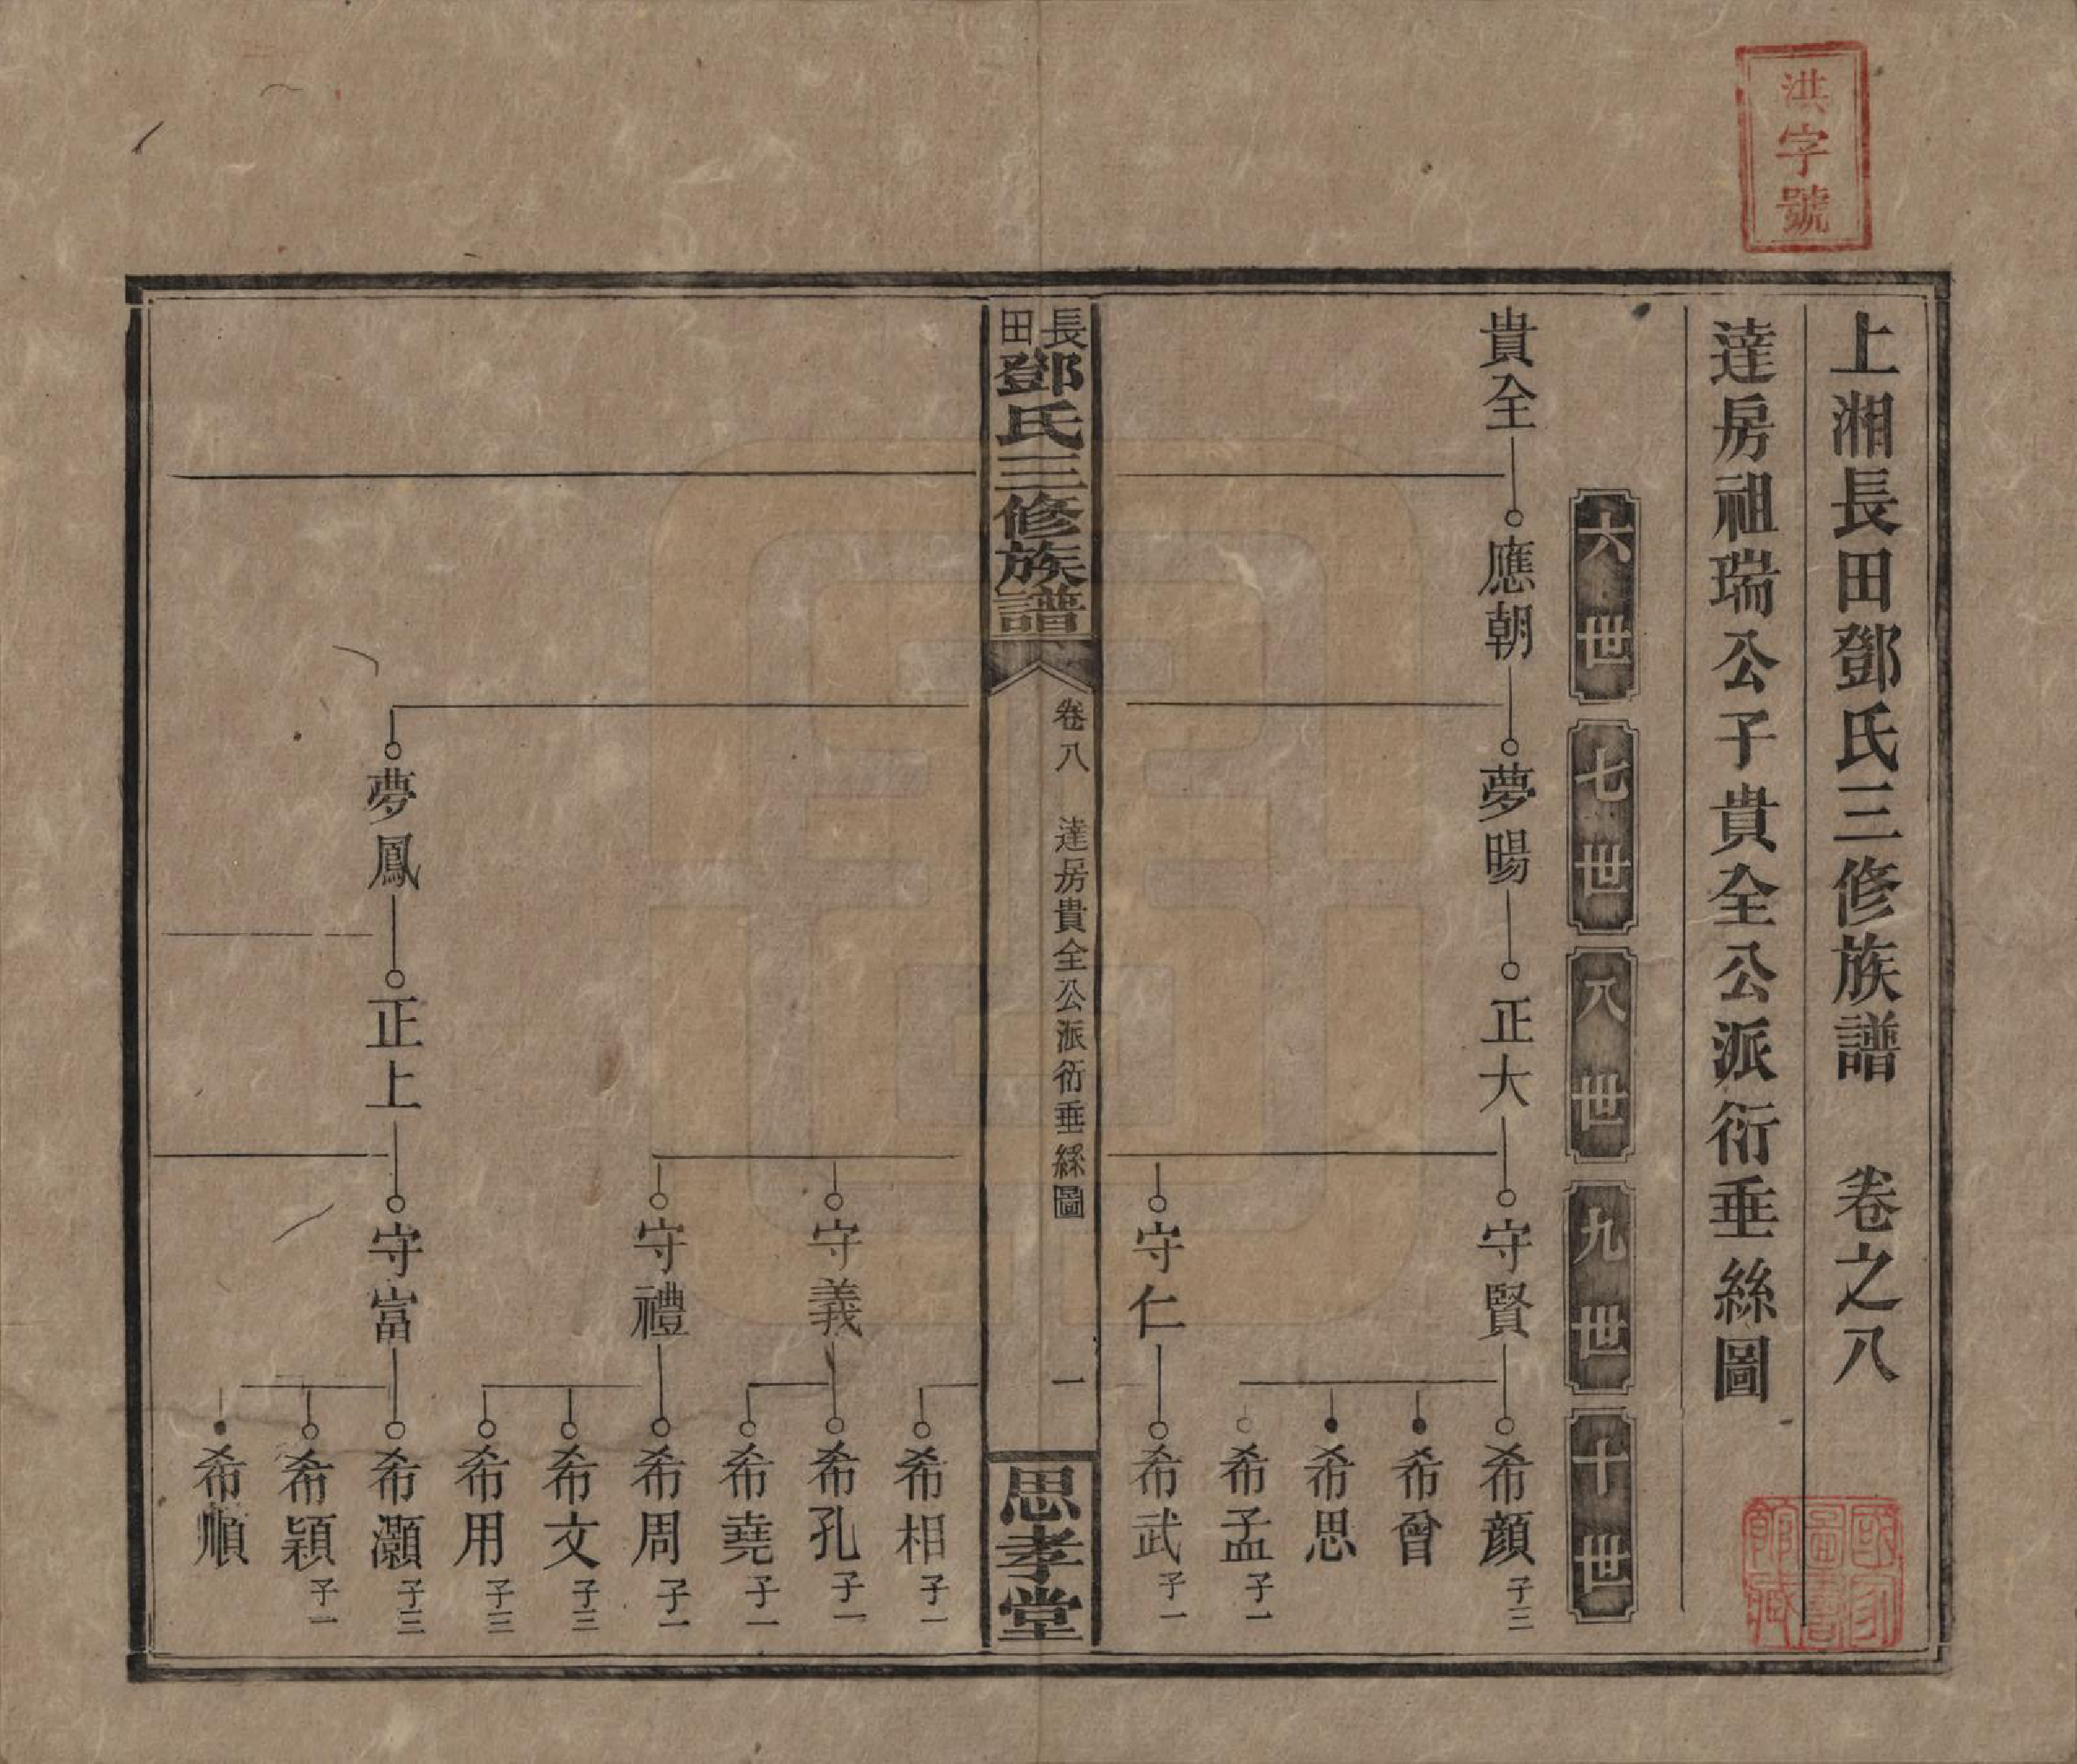 洪字號
上湘長田鄧氏三修族譜 卷之八
達房祖瑞公子貴全公派衍垂絲圖
六世
七世
八世
九世
十世
貴全
應朝
夢暘
正大
守賢
希顔 子三
希曾
希思
希孟 子一
守仁
希武 子一
長田鄧氏三修族譜
卷八 達房貴全公派衍垂絲圖
一
思孝堂
希相 子一
守義
希孔 子一
希堯 子一
守禮
希周 子一
希文 子三
希用 子三
夢鳳
正上
守富
希灝 子三
希穎 子一
希順
國家圖書館藏